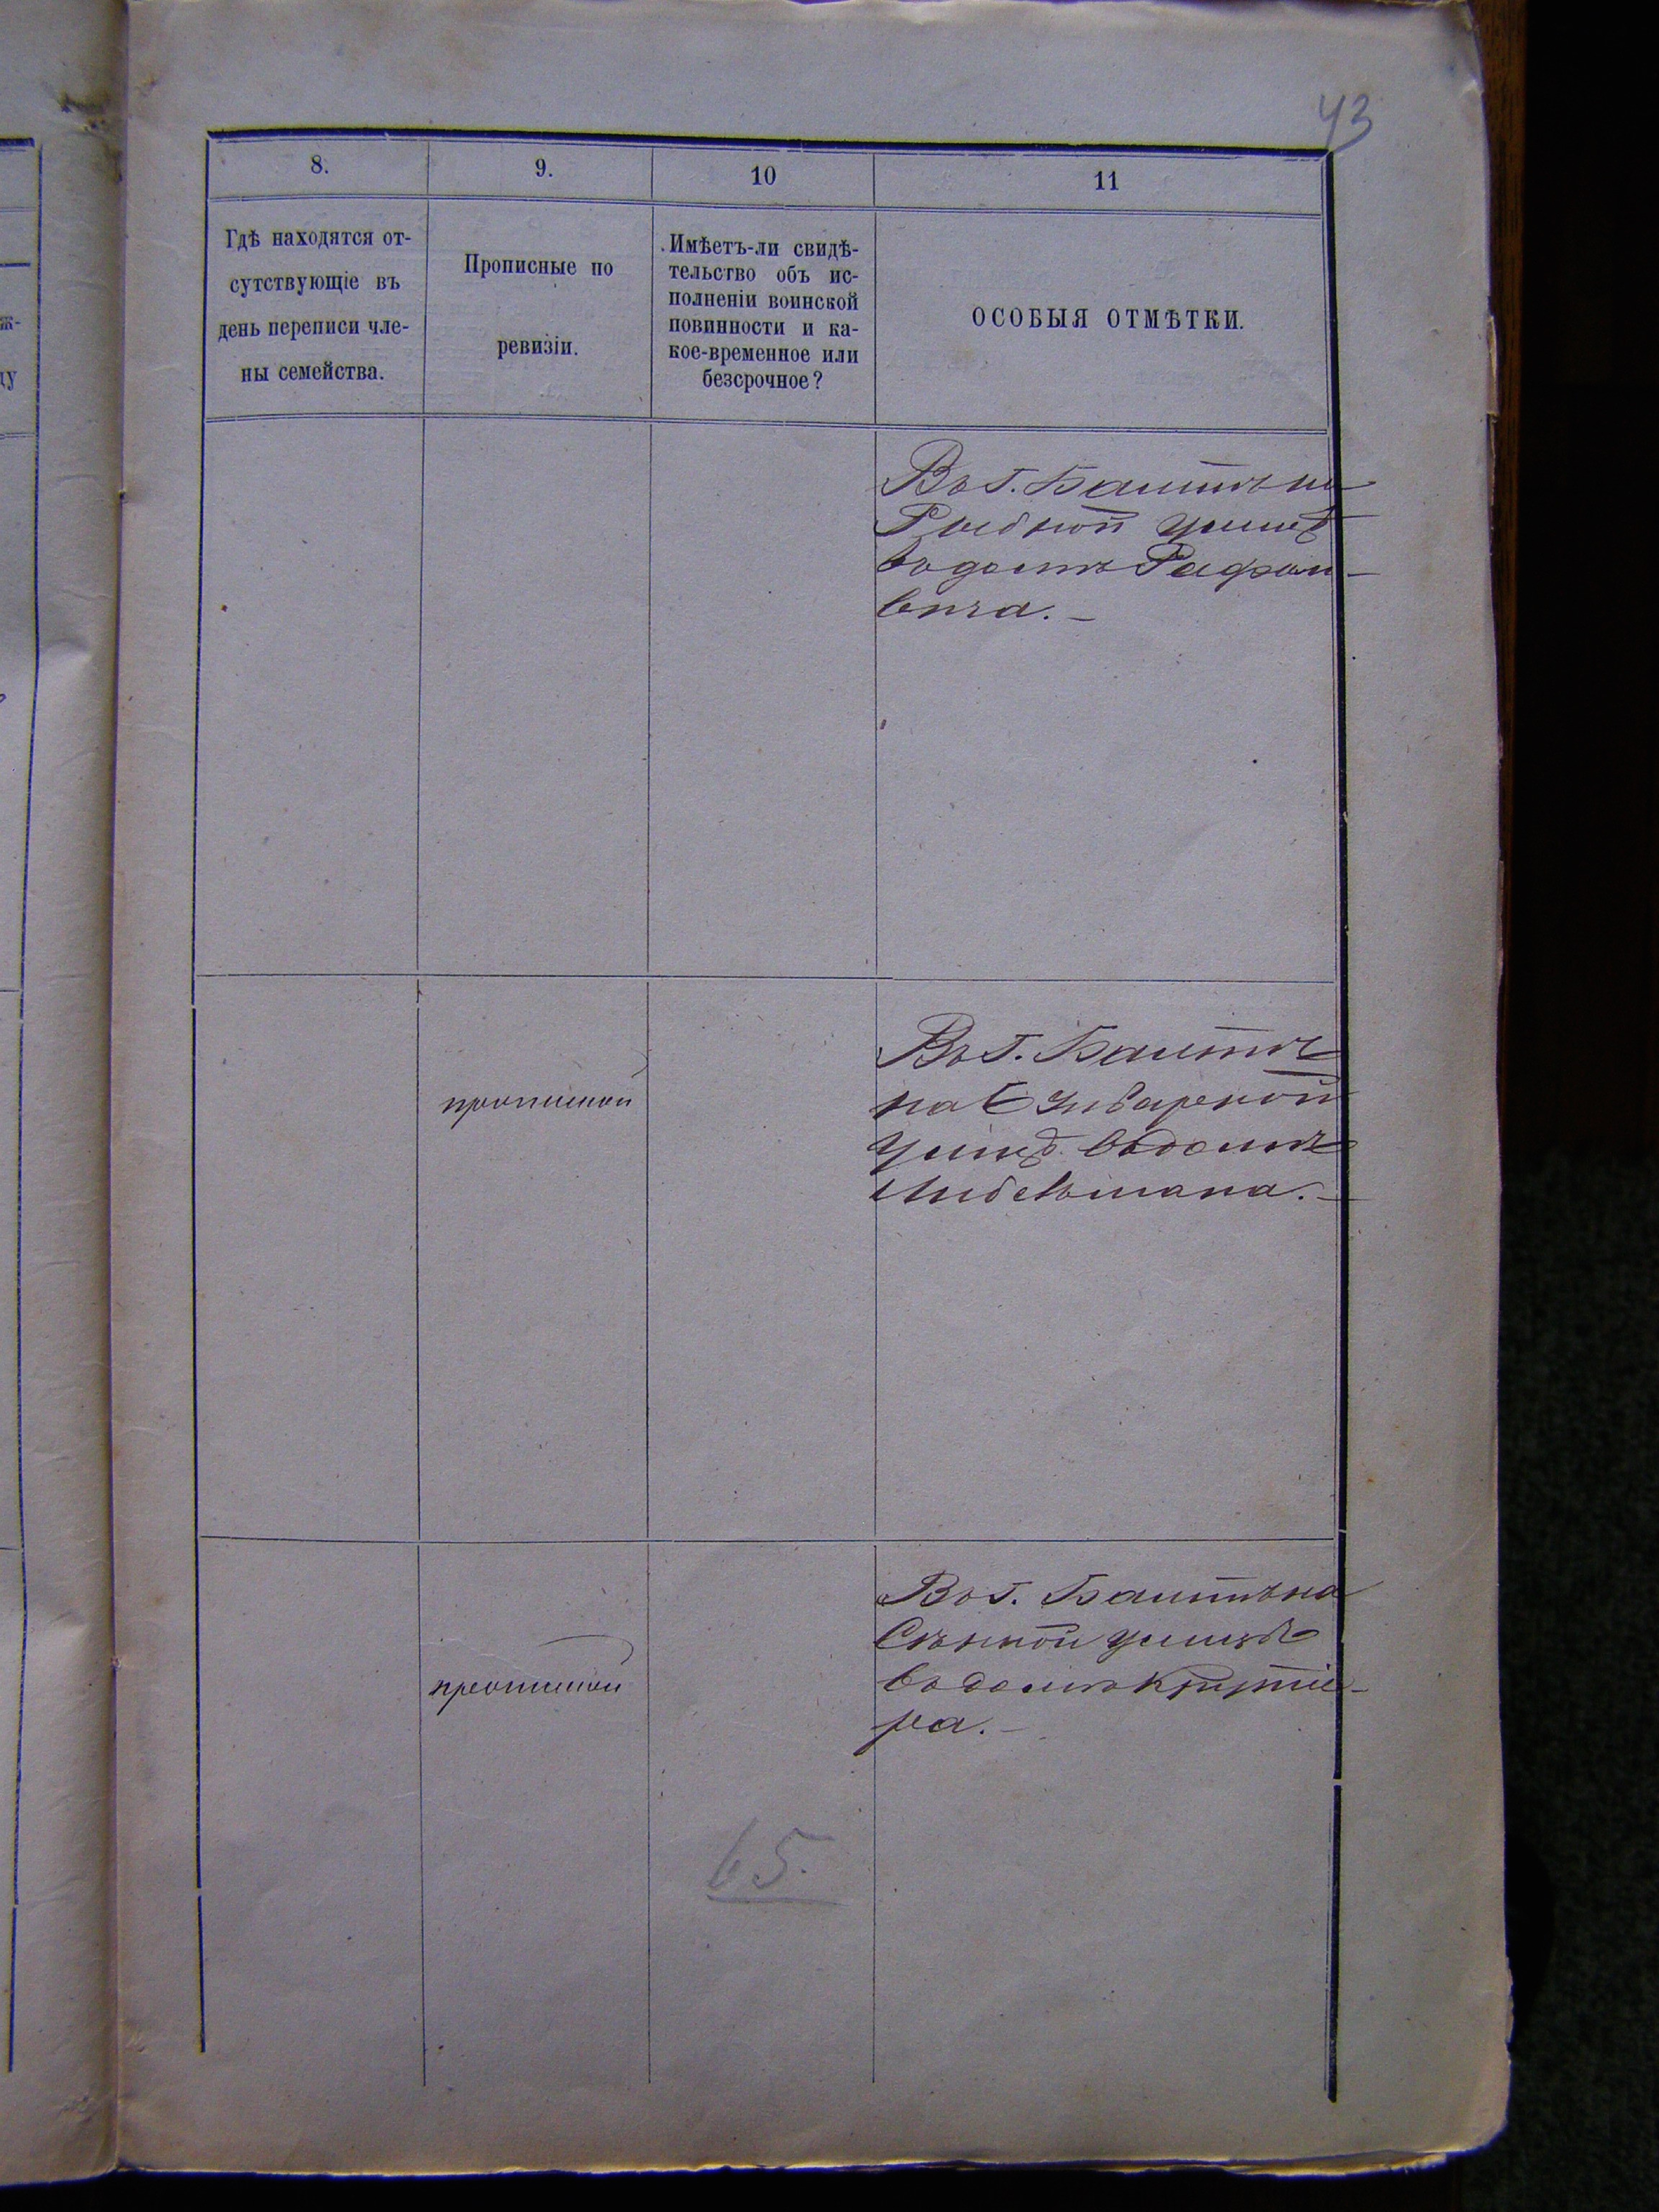 43
8.
9.
10
11
Гдѣ находятся от-
сутствующіе въ
день переписи чле-
ны семейства.
Прописные по
ревизіи.
Имѣетъ-ли свидѣ-
тельство объ ис-
полненіи воинской
повинности и ка-
кое-временное или
безсрочное?
ОСОБЫЯ ОТМѢТКИ.
Въ г. Балтѣ на
Рыбной улицѣ
въ домѣ
вича.
прописной
Въ г. Балтѣ
на
улицѣ въ домѣ
Либермана.
прописной
Въ г. Балтѣ на
Сѣнной улицѣ
въ домѣ
ра.
65.
ж-
ду